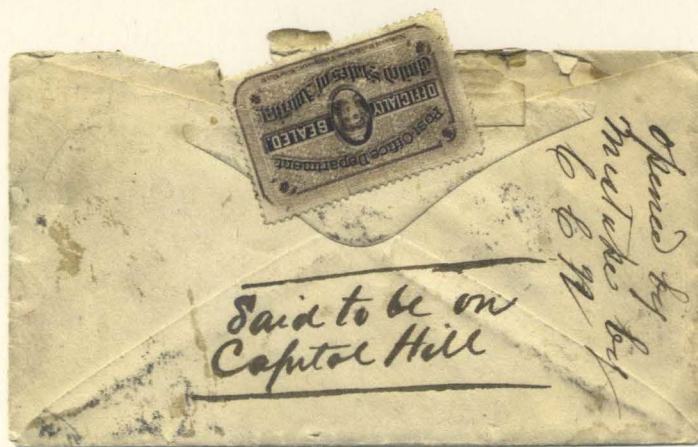 Post Office Department
OFFICIALLY SEALED.
United States of America
opened by
mistake by
Said to be on
Capitol Hill